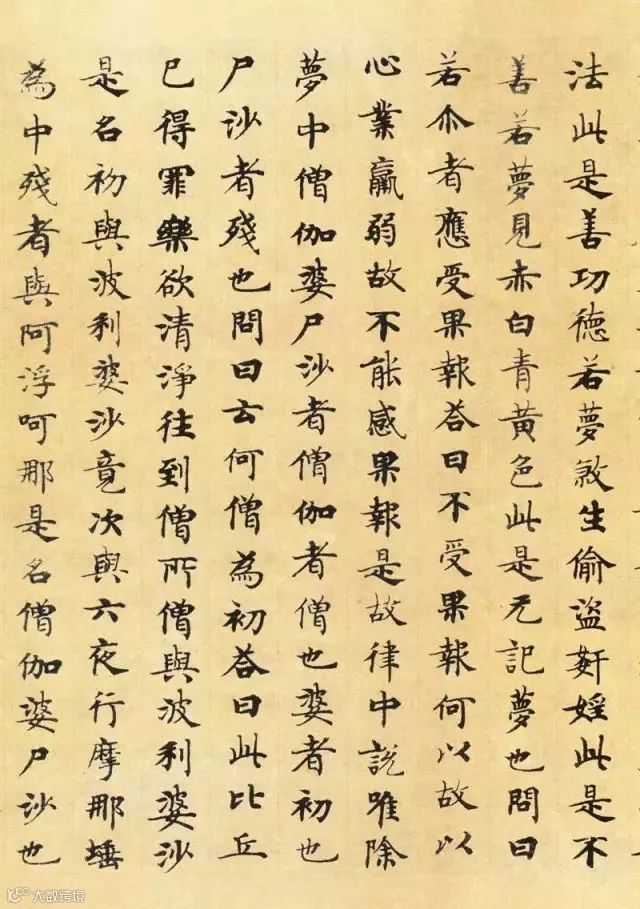 法此是善功徳若夢煞生偷盜姧婬此是不
善若夢見赤白青黃色此是无記夢也問曰
若尒者應受果報荅曰不受果報何以故以
心業羸弱故不能感果報是故律中說唯除
夢中僧伽婆尸沙者僧伽者僧也婆者初也
尸沙者殘也問曰云何僧為初荅曰此比丘
已得罪樂欲清淨往到僧所僧與波利婆沙
是名初與波利婆沙竟次與六夜行摩那埵
為中殘者與阿浮呵那是名僧伽婆尸沙也
大数跨境